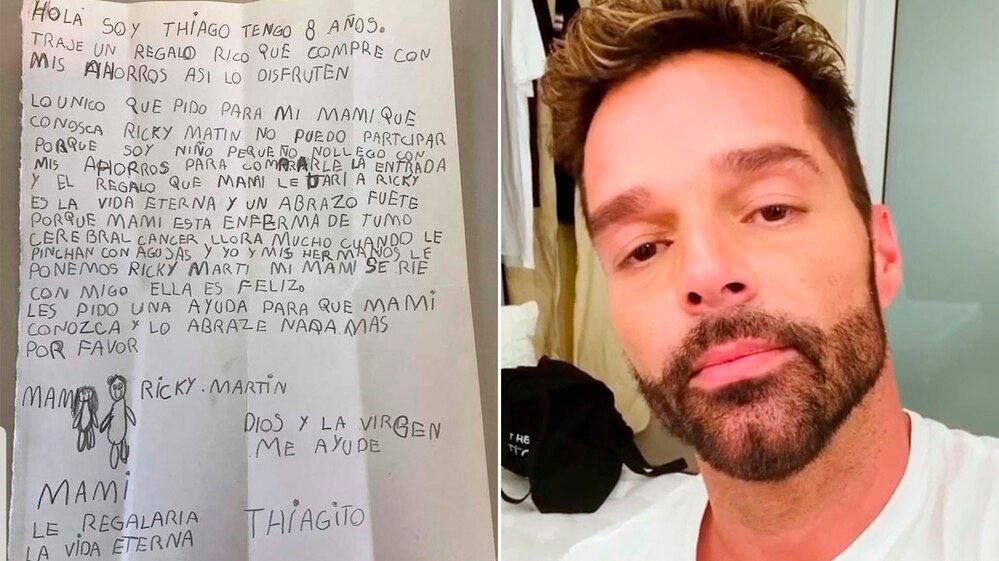 HOLA SOY THIAGO TENGO 8 AÑOS.
TRAJE UN REGALO RICO QUE COMPRE CON
MIS AHORROS ASI LO DISFRUTEN
LO UNICO QUE PIDO PARA MI MAMI QUE
CONOSCA RICKY MATIN NO PUEDO PARTCIPAR
PORQUE SOY NIÑO PEQUEÑO NO LLEGO CON
MIS AHORROS PARA COMPRARLE LA ENTRADA
Y EL REGALO QUE MAMI LE DARI A RICKY
ES LA VIDA ETERNA Y UN ABRAZO FUETE
PORQUE MAMI ESTA ENFERMA DE TUMO
CEREBRAL CANCER LLORA MUCHO CUANDO LE
PINCHAN CON AGUJAS Y YO Y MIS HERMANOS LE
PONEMOS RICKY MARTI MI MAMI SE RIE
CON MIGO ELLA ES FELIZ.
LES PIDO UNA AYUDA PARA QUE MAMI
CONOZCA Y LO ABRAZE NADA MAS
POR FAVOR
MAMI RICKY. MARTIN
DIOS Y LA VIRGEN
ME AYUDE
MAMI
LE REGALARIA
LA VIDA ETERNA
THIAGITO
THE